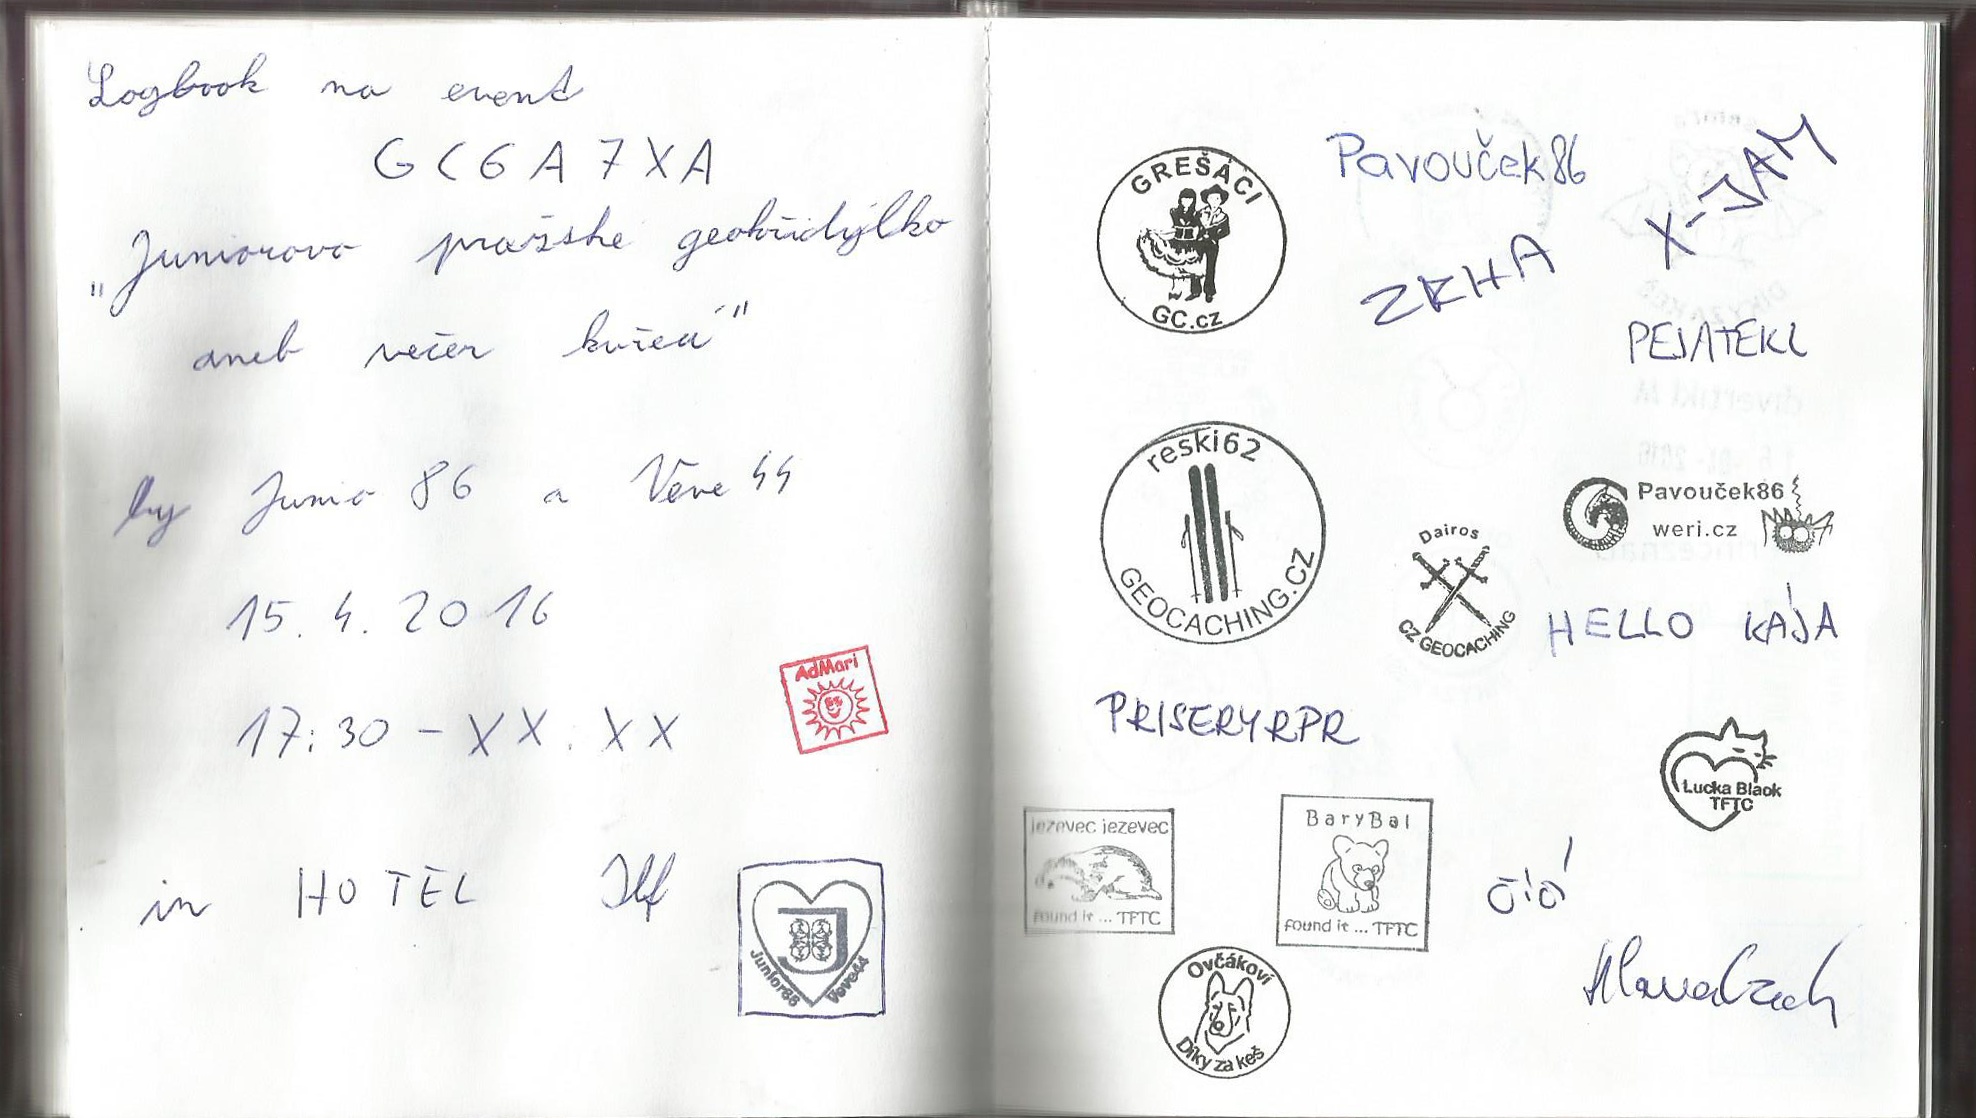 Logbook na event
GC6A7XA
"Juniorovo pražské geokřidýlko
aneb večer kuřecí"
by Junior 86 a Veve 44
15.4.2016
17:30 - XX.XX
in HOTEL Ilf
AdMari
Junior86 Veve44
GREŠÁCI
GC.cz
Pavouček86
X-JAM
ZRHA
PEJATEKL
reski62
GEOCACHING.CZ
Pavouček86
weri.cz
Dairos
CZ GEOCACHING
HELLO KÁJA
PRISERYRPR
Lucka Black
TFTC
jezevec jezevec
found it ... TFTC
BaryBal
found it ... TFTC
Ovčákovi
Díky za keš